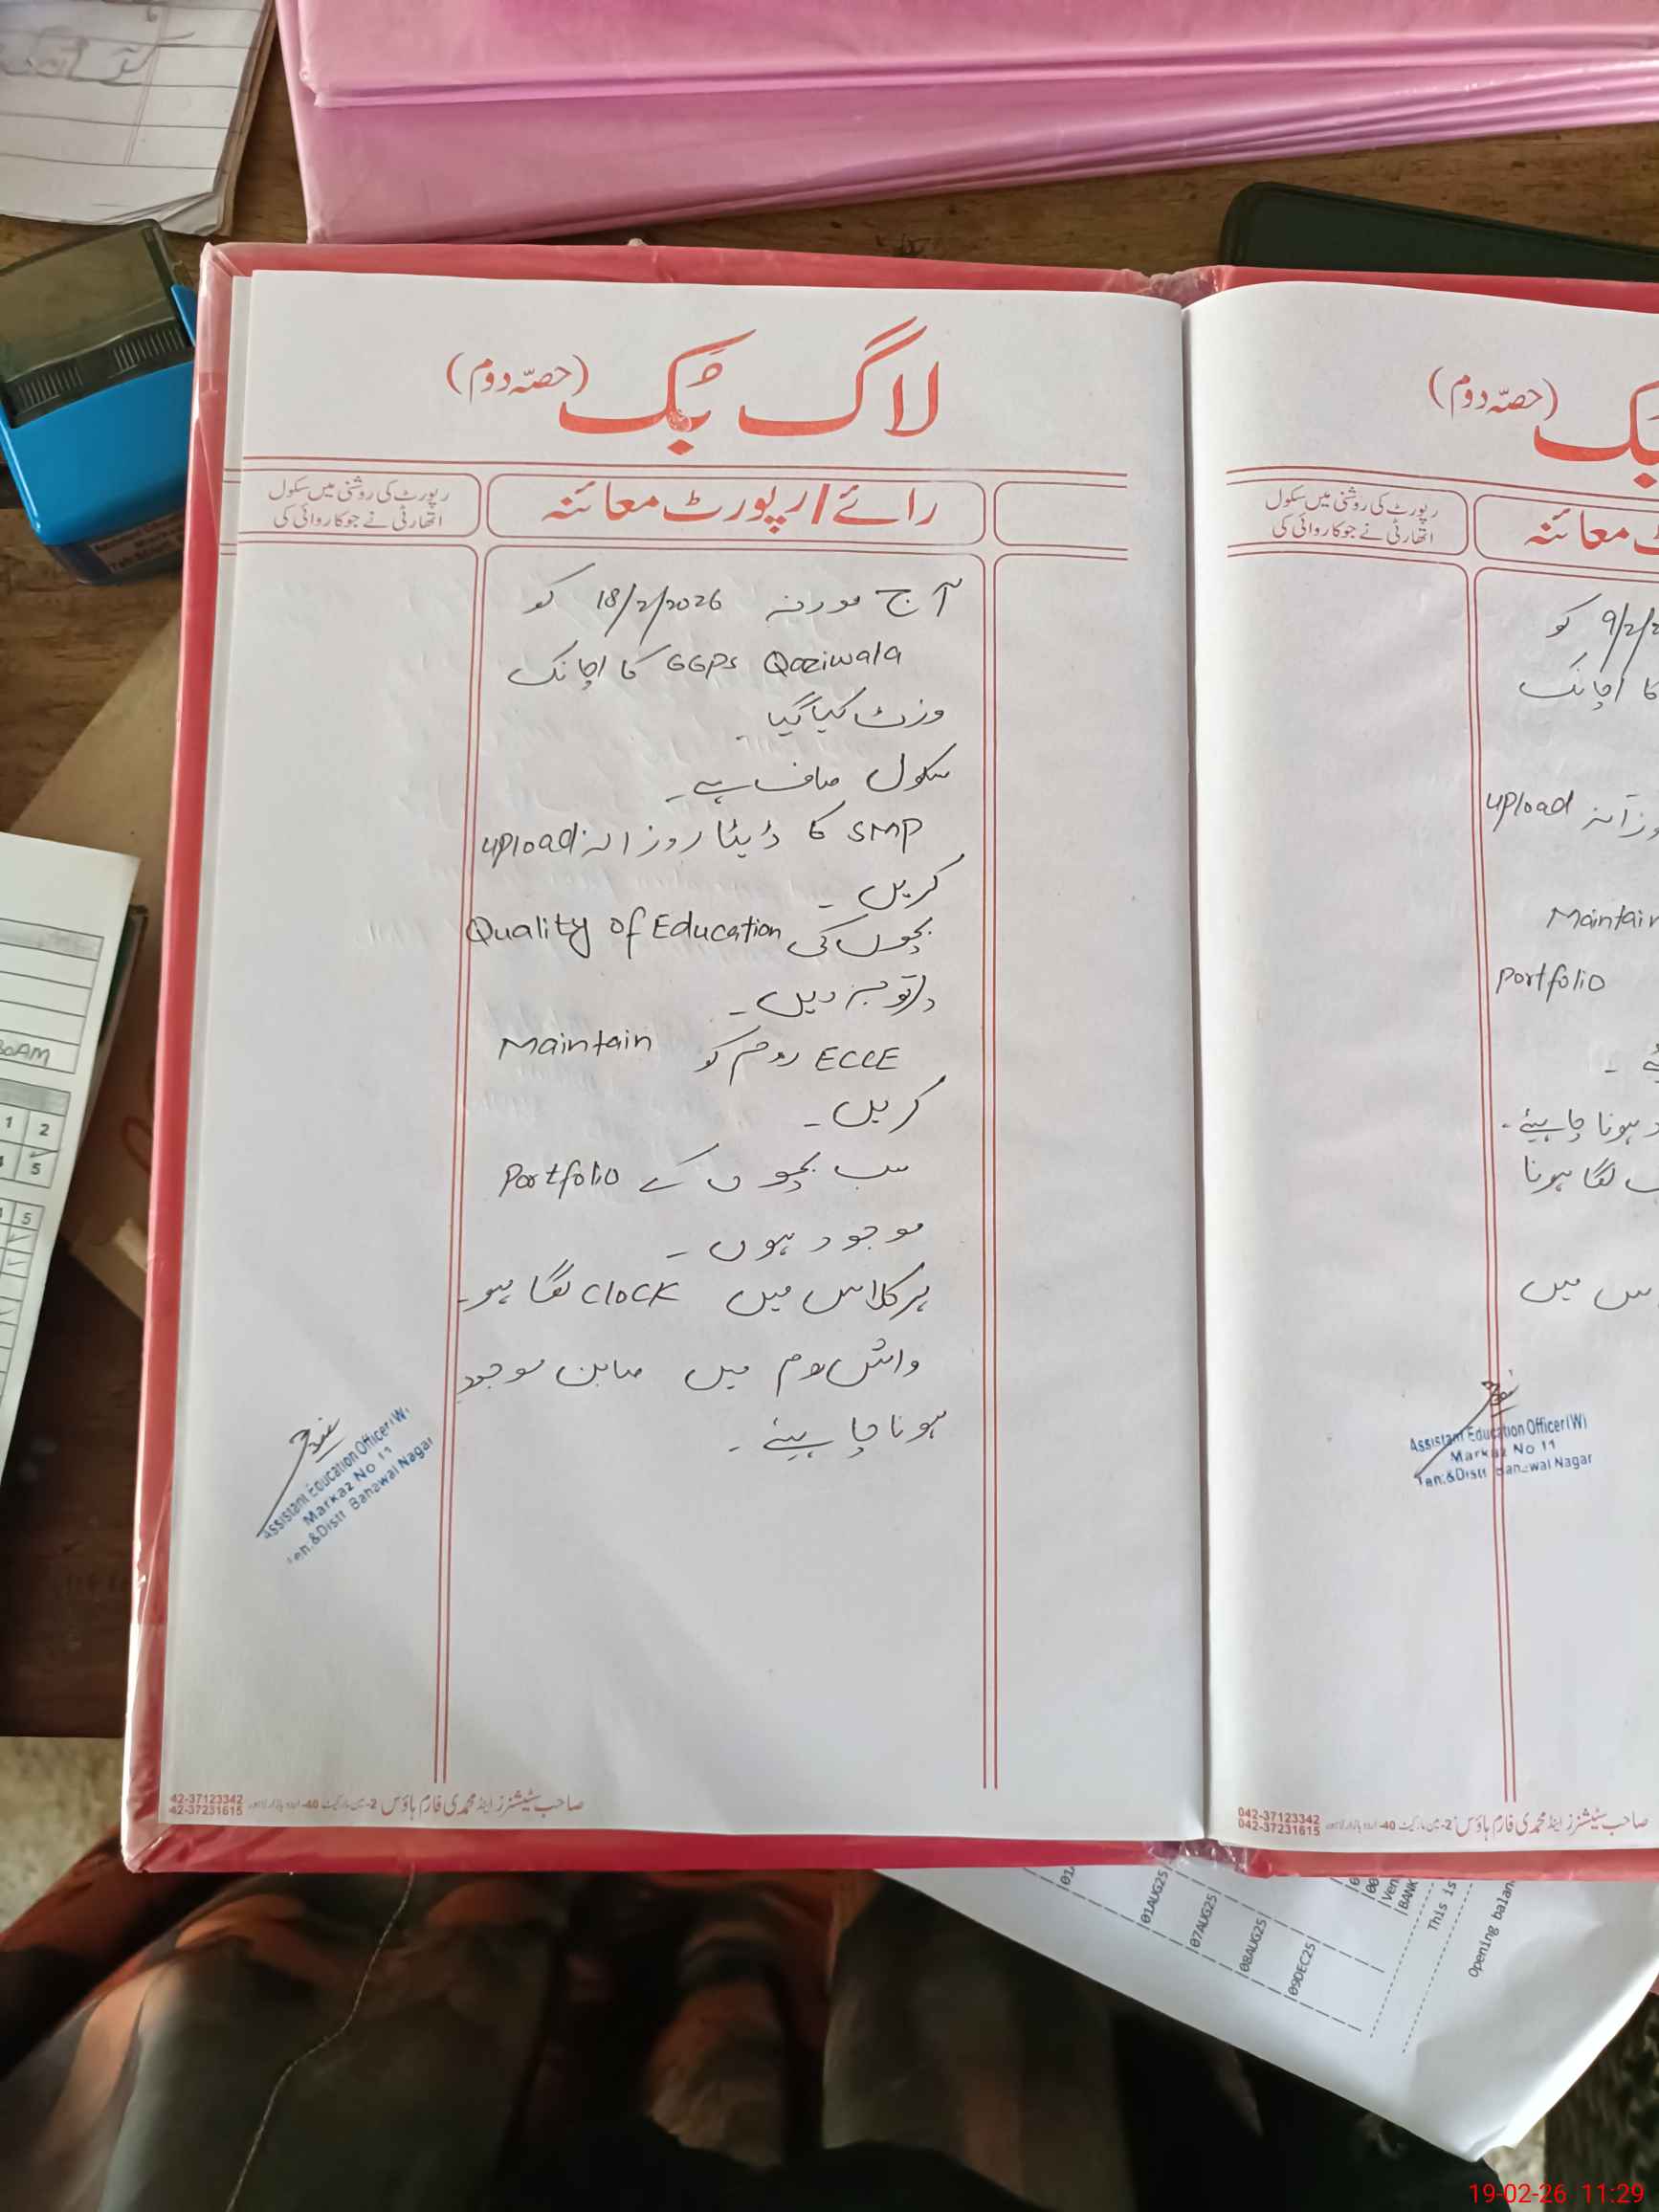 لاگ بُک (حصّہ دوم)
رپورٹ کی روشنی میں سکول
اتھارٹی نے جو کاروائی کی
رائے/رپورٹ معائنہ
آج مورخہ 18/2/2026 کو
GGPS Qaziwala کا اچانک
وزٹ کیا گیا۔
سکول صاف ہے۔
SMP کا ڈیٹا روزانہ upload
کریں۔
بچوں کی Quality of Education
پر توجہ دیں۔
ECCE روم کو Maintain
کریں۔
سب بچوں کے Portfolio
موجود ہوں۔
ہر کلاس میں clock لگا ہو۔
واش روم میں صابن موجود
ہونا چاہیئے۔
Assistant Education Officer (W)
Markaz No 11
Teh:&Distt Bahawal Nagar
42-37123342
42-37231615
صاحب سٹیشنرز اینڈ محمدی فارم ہاؤس 2-مین مارکیٹ 40-اردو بازار لاہور
بک (حصّہ دوم)
رپورٹ کی روشنی میں سکول
اتھارٹی نے جو کاروائی کی
معائنہ
9/2/2 کو
کا اچانک
upload
Maintain
Portfolio
ہونا چاہیئے۔
لگا ہونا
س میں
Assistant Education Officer (W)
Markaz No 11
Teh:&Distt Bahawal Nagar
042-37123342
042-37231615
صاحب سٹیشنرز اینڈ محمدی فارم ہاؤس 2-مین مارکیٹ 40-اردو بازار لاہور
30AM
1 2
5
5
01AUG25
07AUG25
08AUG25
09DEC25
BANK
This is
Opening balan
19-02-26 11:29